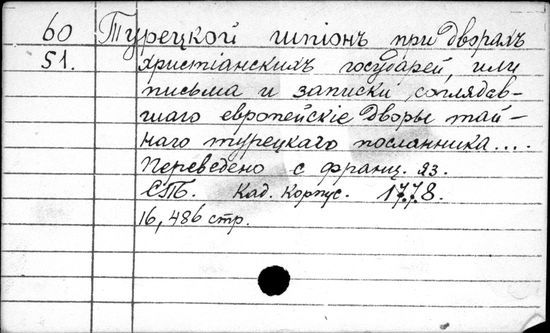 60 Турецкой шпіонъ при дворахъ
51. христіанскихъ государей, или
письма и записки соглядав-
шаго европейскіе дворы тай-
наго турецкаго посланника....
Переведено с франц. яз.
СПБ. Кад. корпус. 1778.
16, 486 стр.